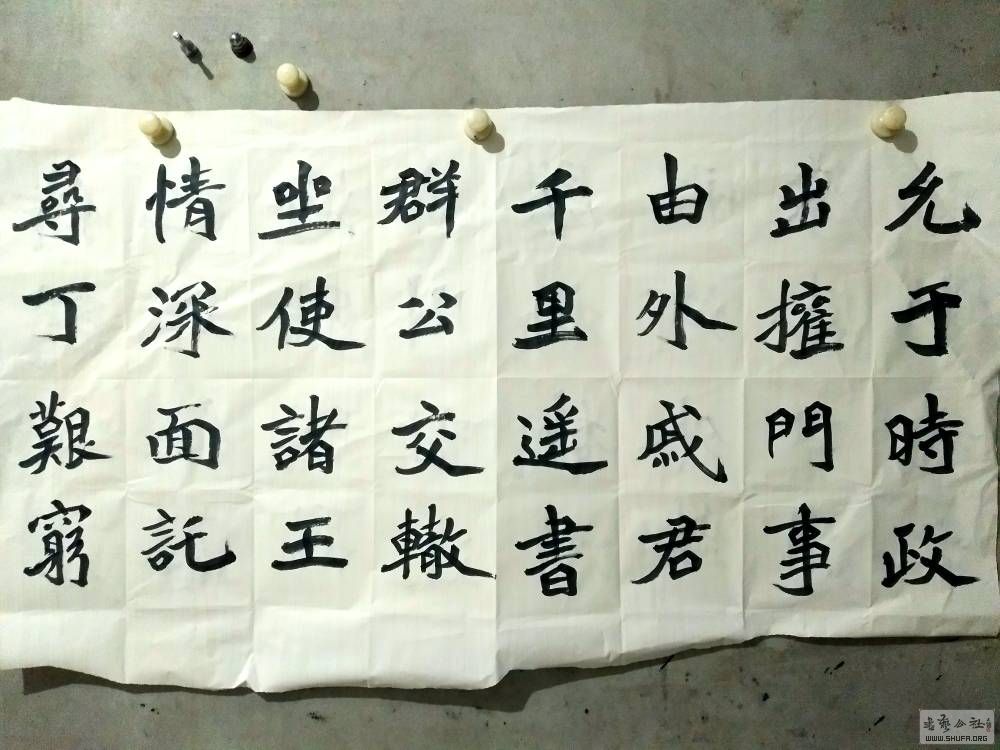 允于時政
出擁門事
由外戚君
千里遥書
群公交轍
坐使諸王
情深面託
尋丁艱窮
书艺公社
WWW.SHUFA.ORG